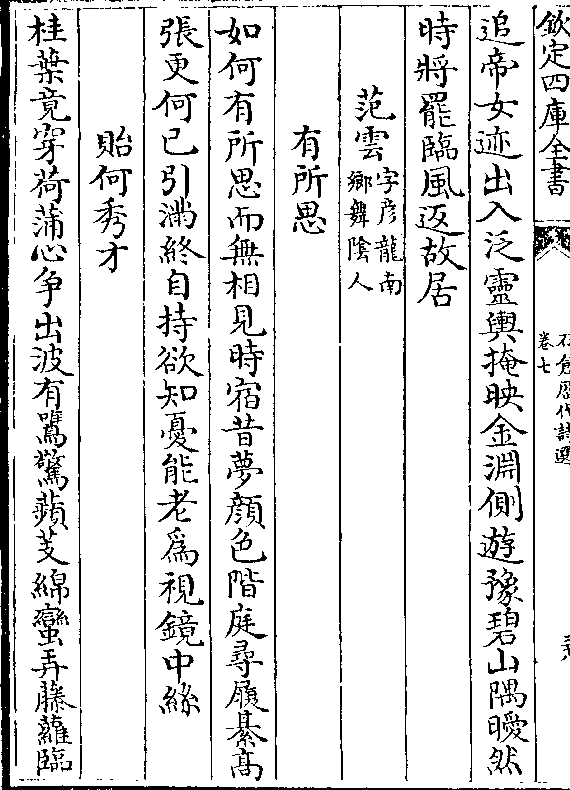 欽定四庫全書
石倉歷代詩選
卷七
追帝女迹出入泛靈輿掩映金淵側遊豫碧山隅曖然
時將罷臨風返故居
范雲字彦龍南
鄉舞隂人
有所思
如何有所思而無相見時宿昔夢顔色階庭尋履綦高
張更何已引滿終自持欲知憂能老為視鏡中絲
貽何秀才
桂葉竟穿荷蒲心争出波有鷕驚蘋芰綿蠻弄藤蘿臨